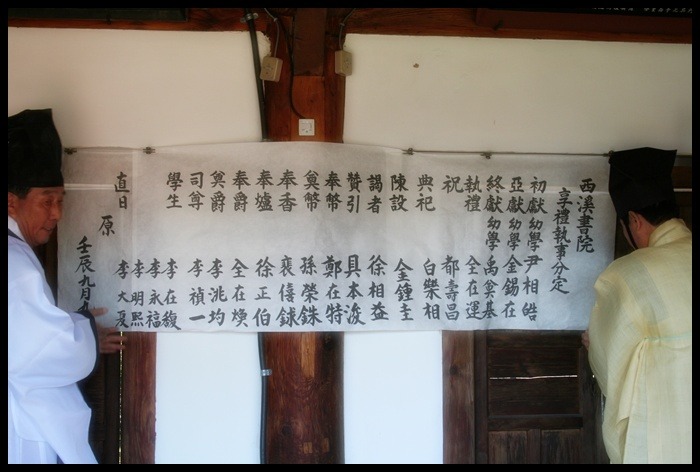 西溪書院
享禮執事分定
初獻 幼學 尹相皓
亞獻 幼學 金錫在
終獻 幼學 禹箕基
執禮 全在運
祝 都壽昌
典祀 白樂相
陳設 金鍾圭
謁者 徐相益
贊引 具本浚
奉幣 鄭在特
奠幣 孫榮銖
奉香 裵僖銶
奉爐 徐正伯
奉爵 全在煥
奠爵 李洮均
司尊 李禎一
學生 李在馥
李永福
李明熙
直日 李大夏
原
壬辰九月